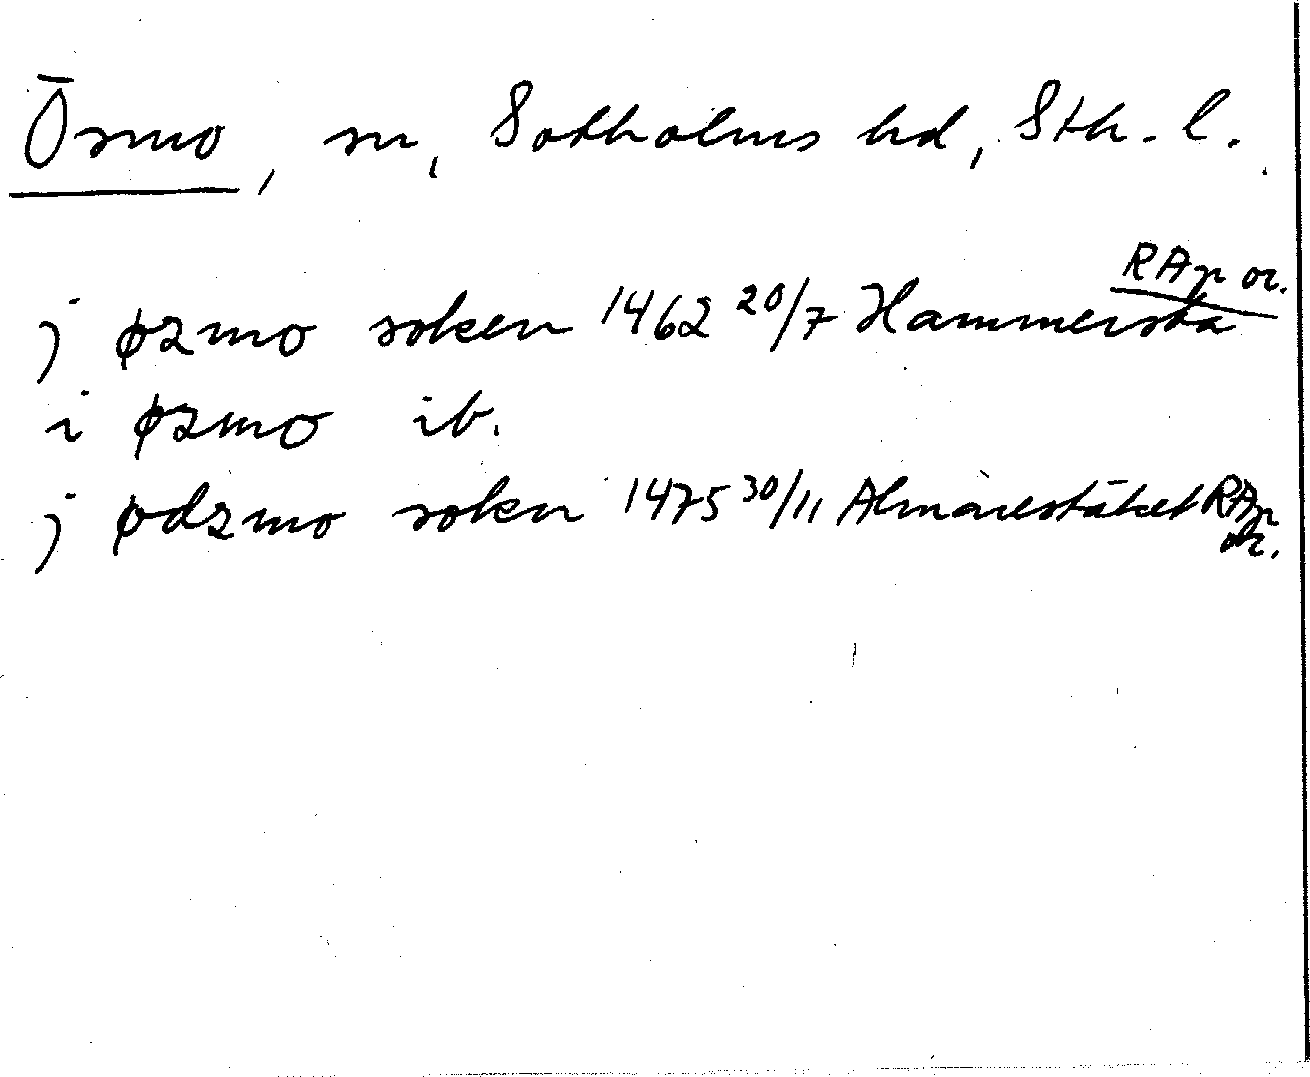 Ösmo, sn, Sotholms hd, Sth. l.
j øzmo soken 1462 20/7 Hammersta RAp or.
i øzmo ib.
j ødzmo sokn 1475 30/11 Almarestäket RAp or.